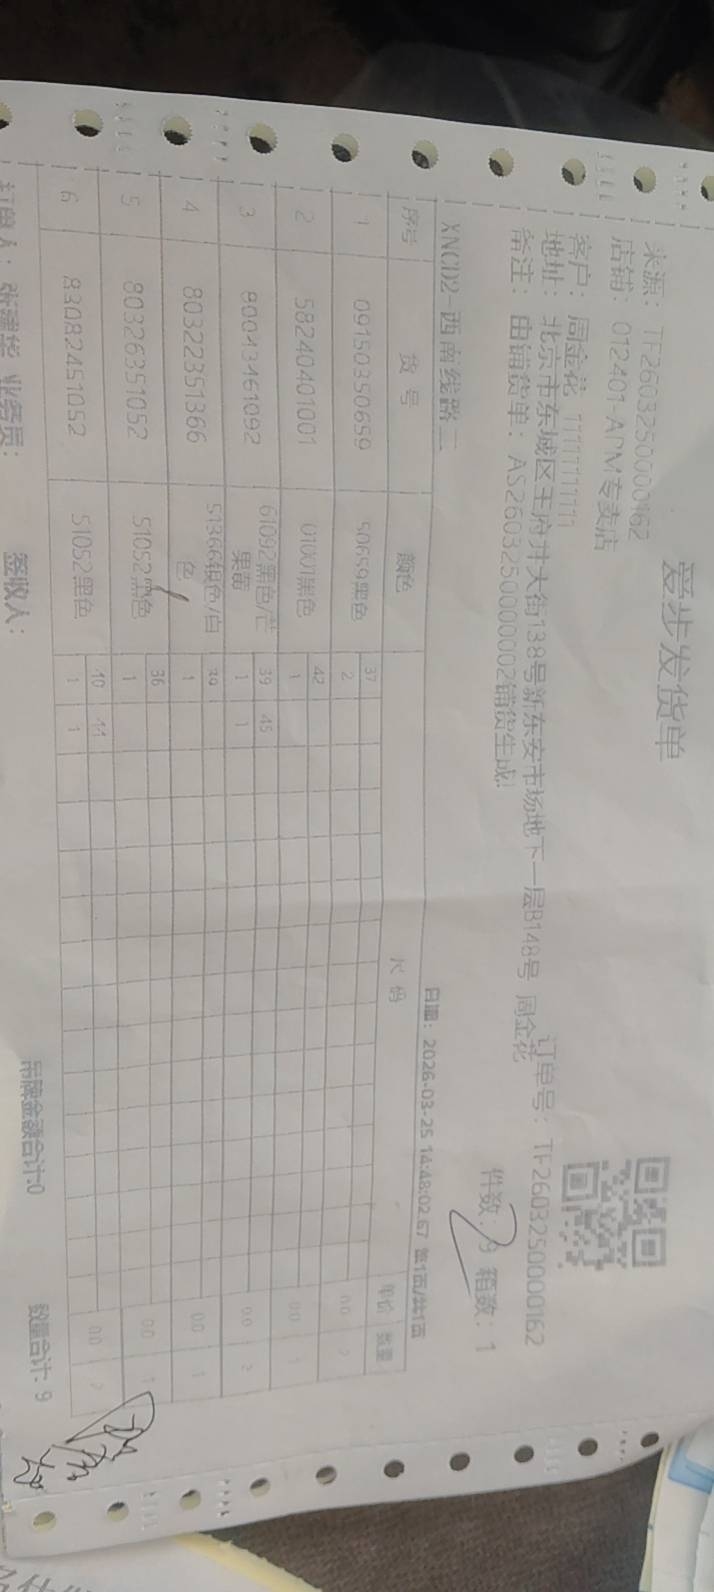 爱步发货单
来源：TF2603250000162
店铺：012401-APM专卖店
客户：周金花 11111111111
订单号：TF2603250000162
地址：北京市东城区王府井大街138号新东安市场地下一层B148号 周金花
备注：由铺货单：AS260325000002铺货生成!
件数：9 箱数：1
XNCD2-西南线路二
日期：2026-03-25 14:48:02.67 第1页/共1页
序号 货号 颜色 尺码 单价 数量
1 09150350659 50659黑色 37 0.0 2
2
2 58240401001 01001黑色 42 0.0 1
1
3 80043461092 61092黑色/芒果霜 39 45 0.0 2
1 1
4 80322351366 51366银色/白色 39 0.0 1
1
5 80326351052 51052黑色 36 0.0 1
1
6 83082451052 51052黑色 40 44 0.0 2
1 1
吊牌金额合计:0 数量合计: 9
业务员： 签收人：